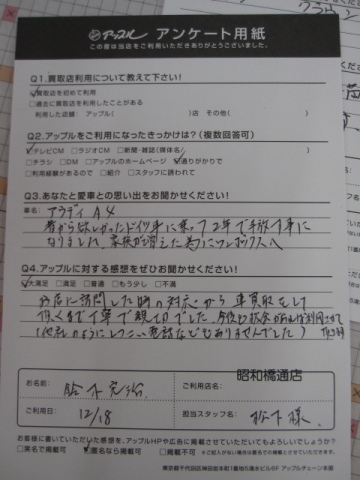 アップル アンケート用紙
この度は当店をご利用いただきありがとうございました。
Q1.買取店利用について教えて下さい!
☑買取店を初めて利用
□過去に買取店を利用したことがある
利用した店舗: アップル( )店 その他( )
Q2.アップルをご利用になったきっかけは?(複数回答可)
☑テレビCM □ラジオCM □新聞・雑誌(媒体名: )
□チラシ □DM □アップルのホームページ ☑通りがかりで
□利用経験があるので □紹介 □スタッフに誘われて
Q3.あなたと愛車との思い出をお聞かせください!
車名: アウディ A4
昔から欲しかったドイツ車に乗って2年で手放す事に
なりました。家族が増えた為にワンボックスへ
Q4.アップルに対する感想をぜひお聞かせください!
☑大満足 □満足 □普通 □もう少し □不満
お店に訪問した時の対応から車買取をして
頂くまで丁寧で親切でした。今後も機会があれば利用させて
(他社のようにしつこい電話などもありませんでした) 頂きます
お名前:
ご利用店名: 昭和橋通店
ご利用日: 12/18
担当スタッフ名: 松下 様.
お客様に書いていただいた感想を、アップルHPや広告に掲載させていただいてもよろしいでしょうか?
□実名で掲載可 ☑匿名なら掲載可 □掲載不可
東京都千代田区神田佐木町1番地5清水ビル6F アップルチェーン本部